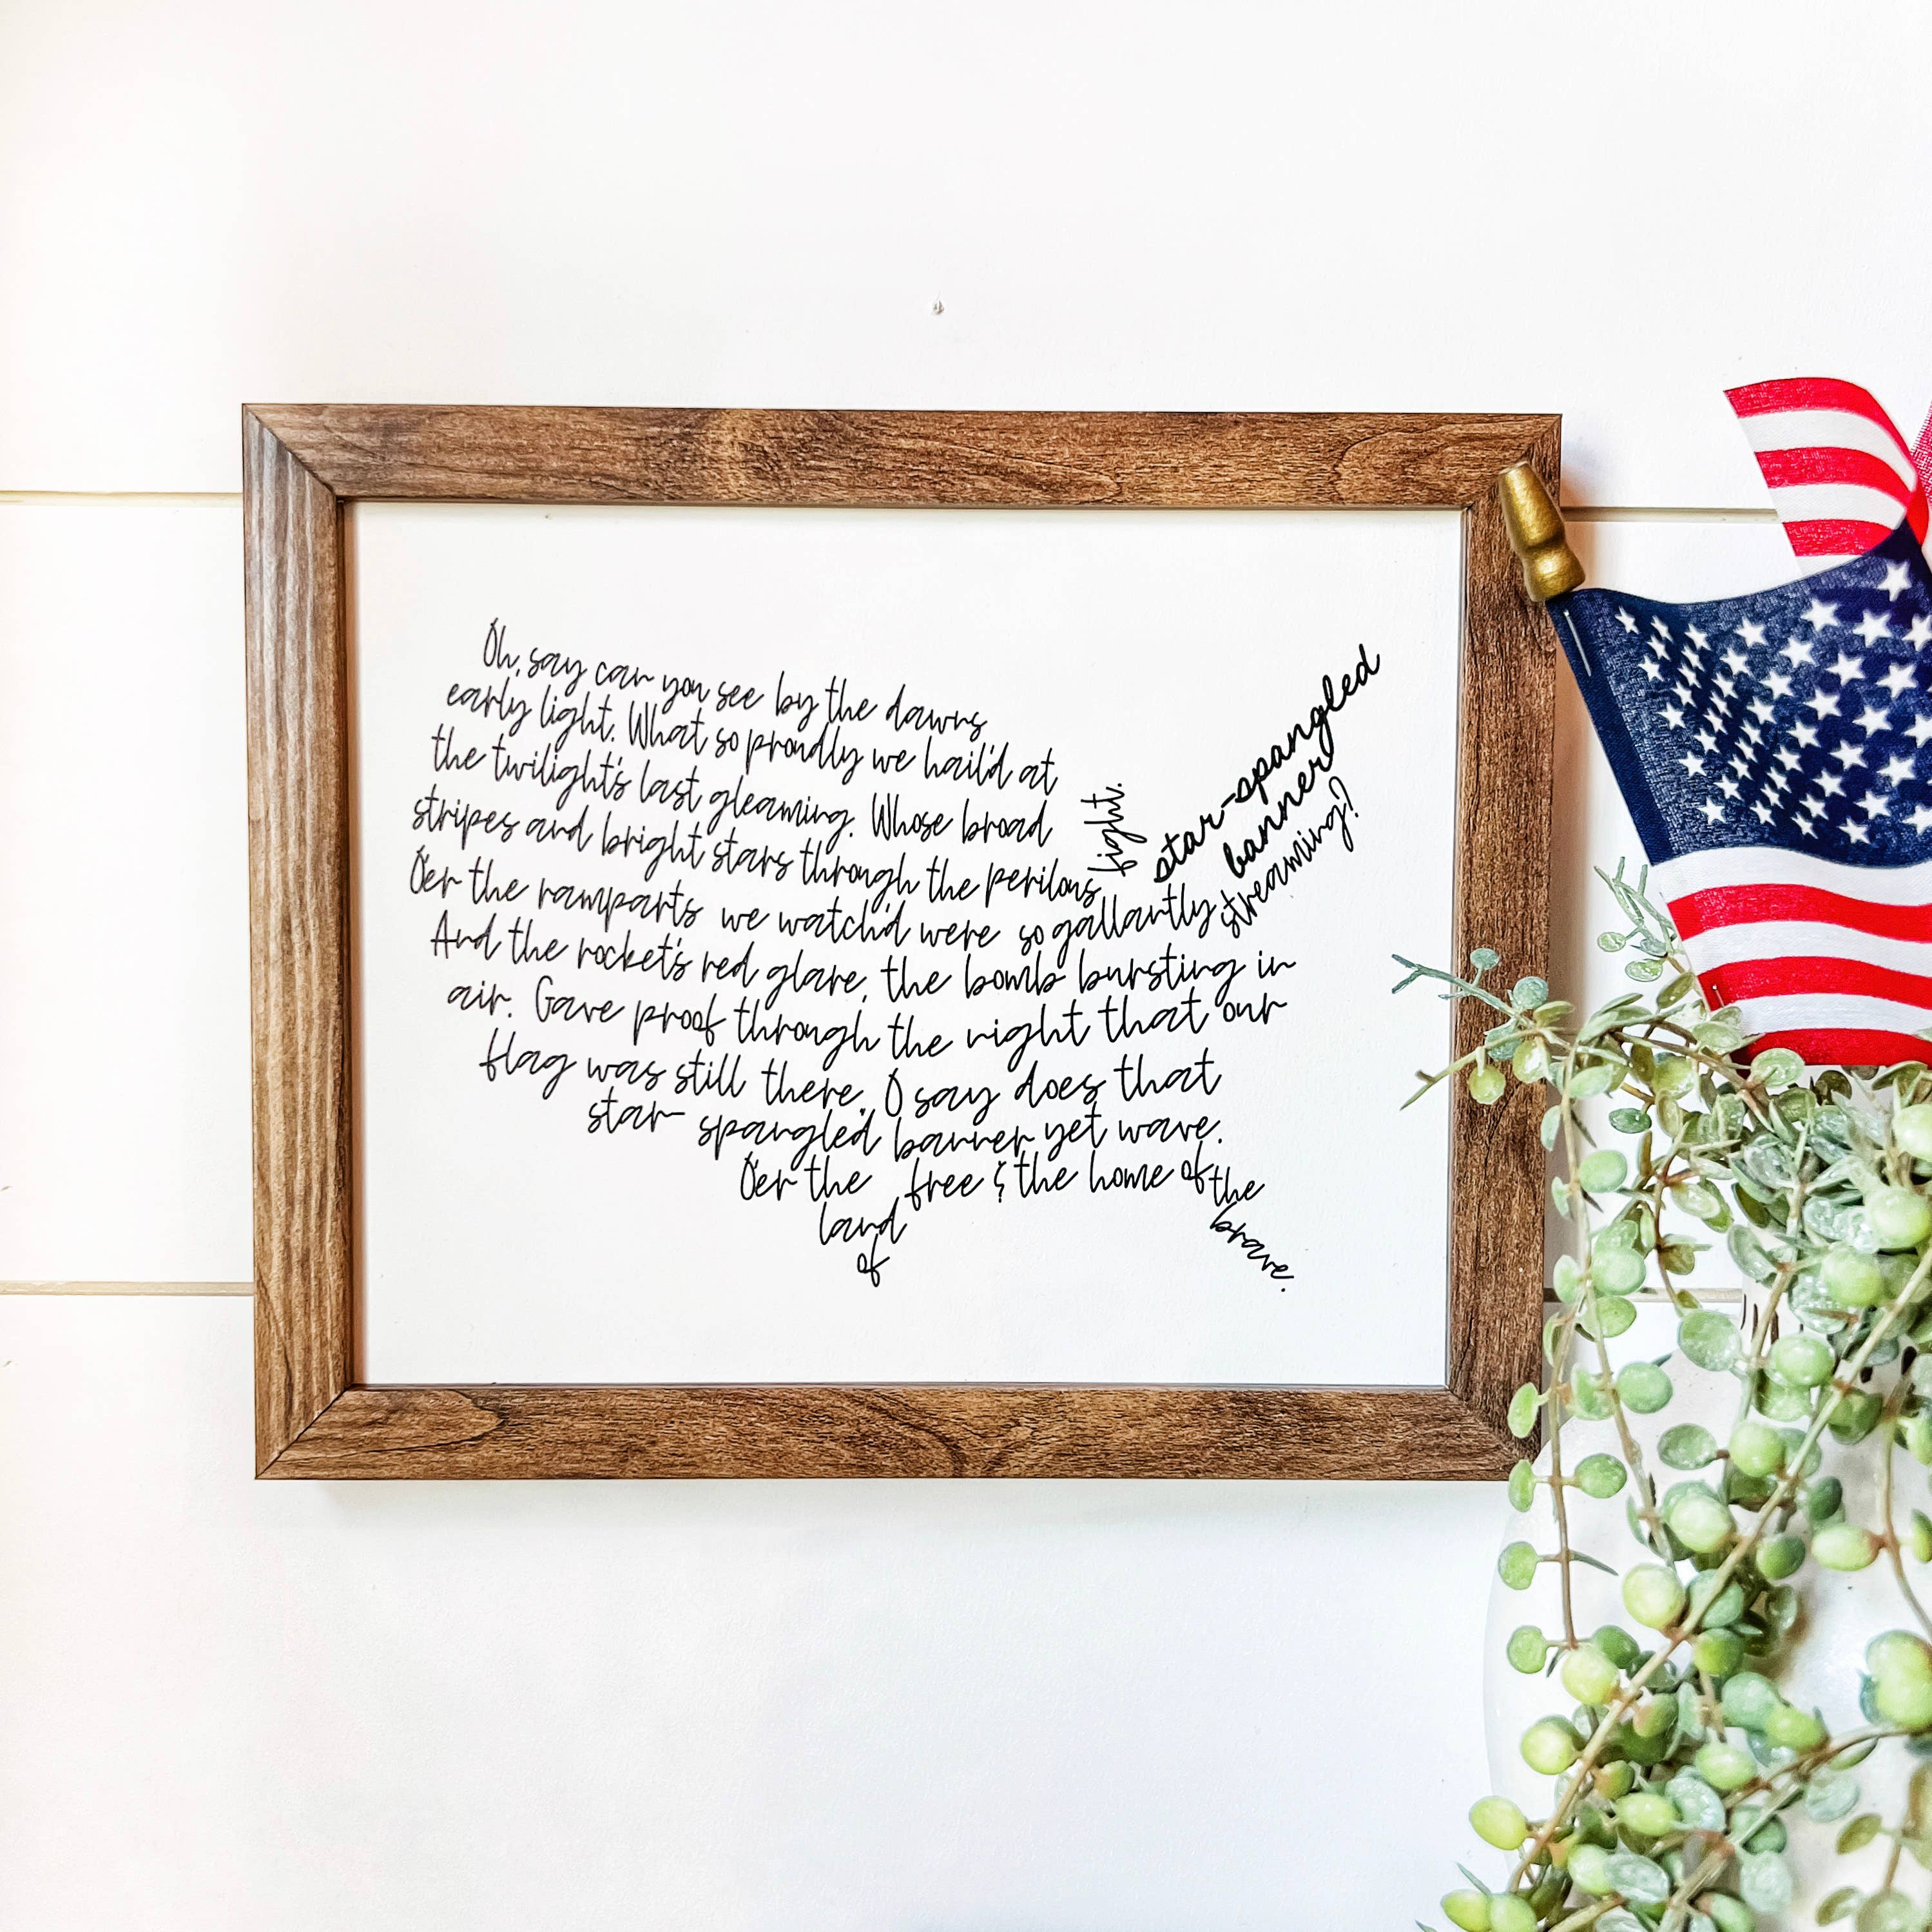 Oh, say can you see by the dawns
early light. What so proudly we hail'd at
the twilight's last gleaming. Whose broad
stripes and bright stars through the perilous
fight.
O'er the ramparts we watch'd were so gallantly
streaming?
star-spangled
banner
And the rocket's red glare, the bomb bursting in
air. Gave proof through the night that our
flag was still there. O say does that
star-spangled banner yet wave.
O'er the
land
of
free & the home of the
brave.